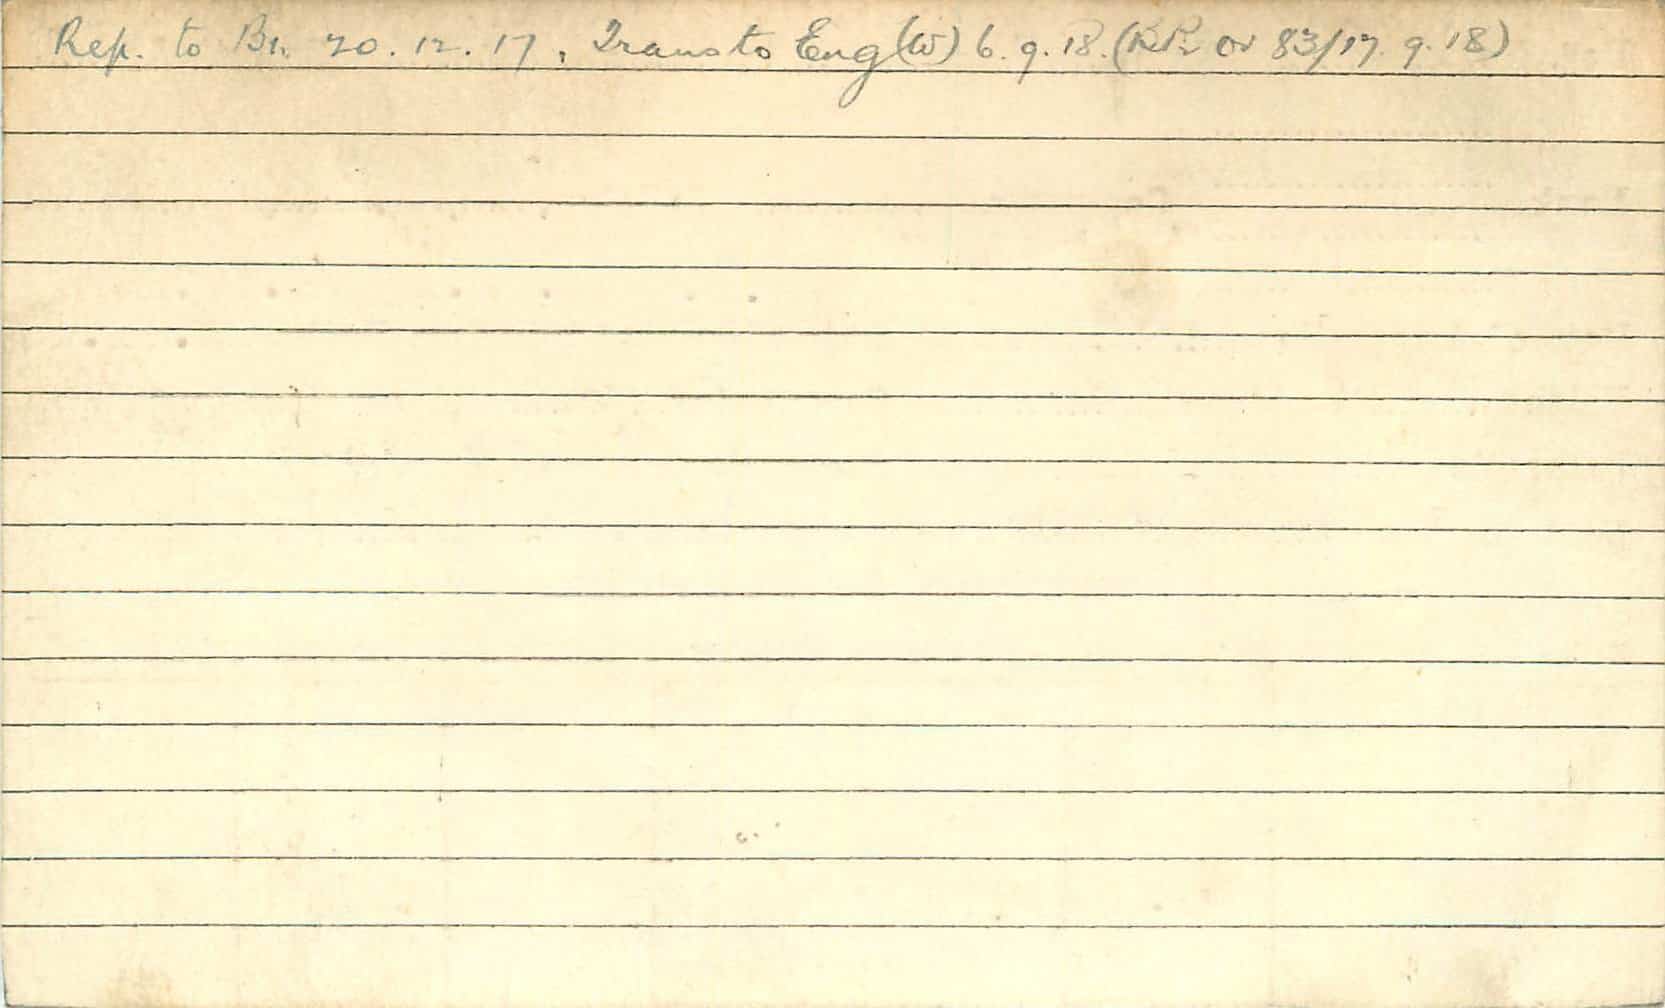 Rep. to Bn. 20.12.17, Trans to Eng (W) 6.9.18. (RR or 83/17.9.18)